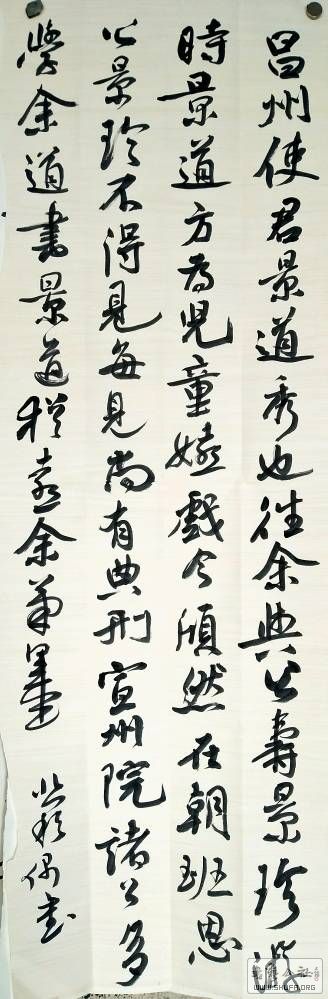 昌州使君景道秀也往余與公壽景珍游
時景道方為兒童嬉戲今頎然在朝班思
公景珍不得見每見尚有典刑宣州院諸公多
學余道書景道猶喜余筆墨
偶書
WWW.SHUFA.ORG